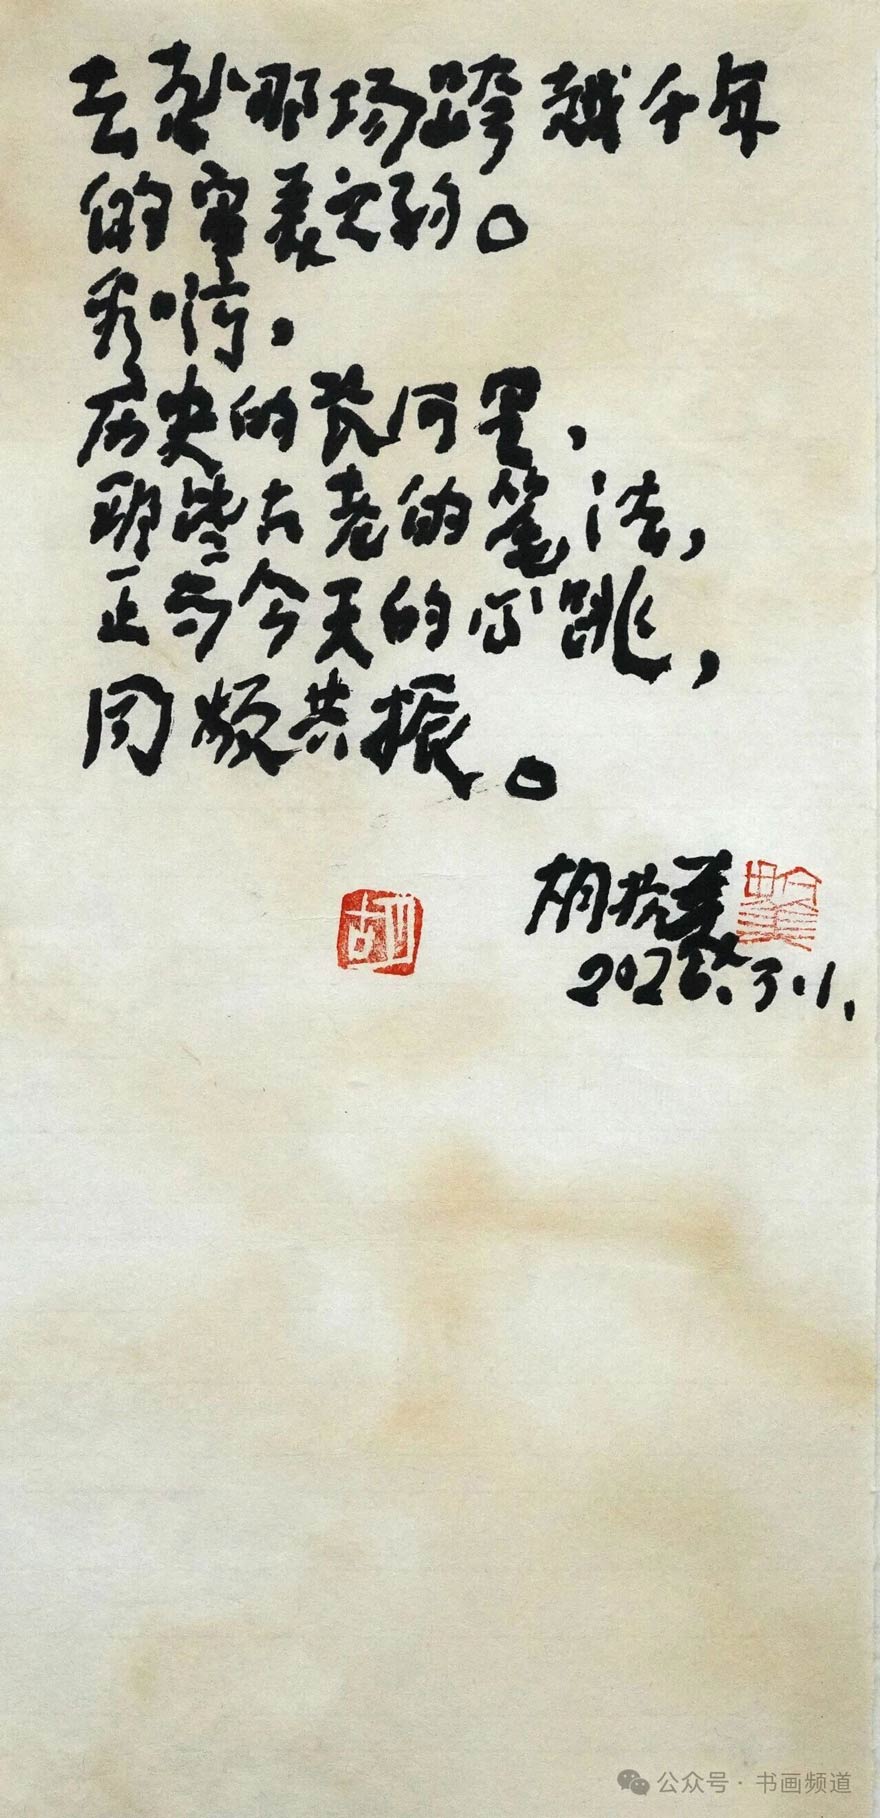 去赴那场跨越千年
的审美之约。
看啊，
历史的长河里，
那些古老的笔法，
正与今天的心跳，
同频共振。
胡抗美
2026.3.1.
胡
公众号 · 书画频道